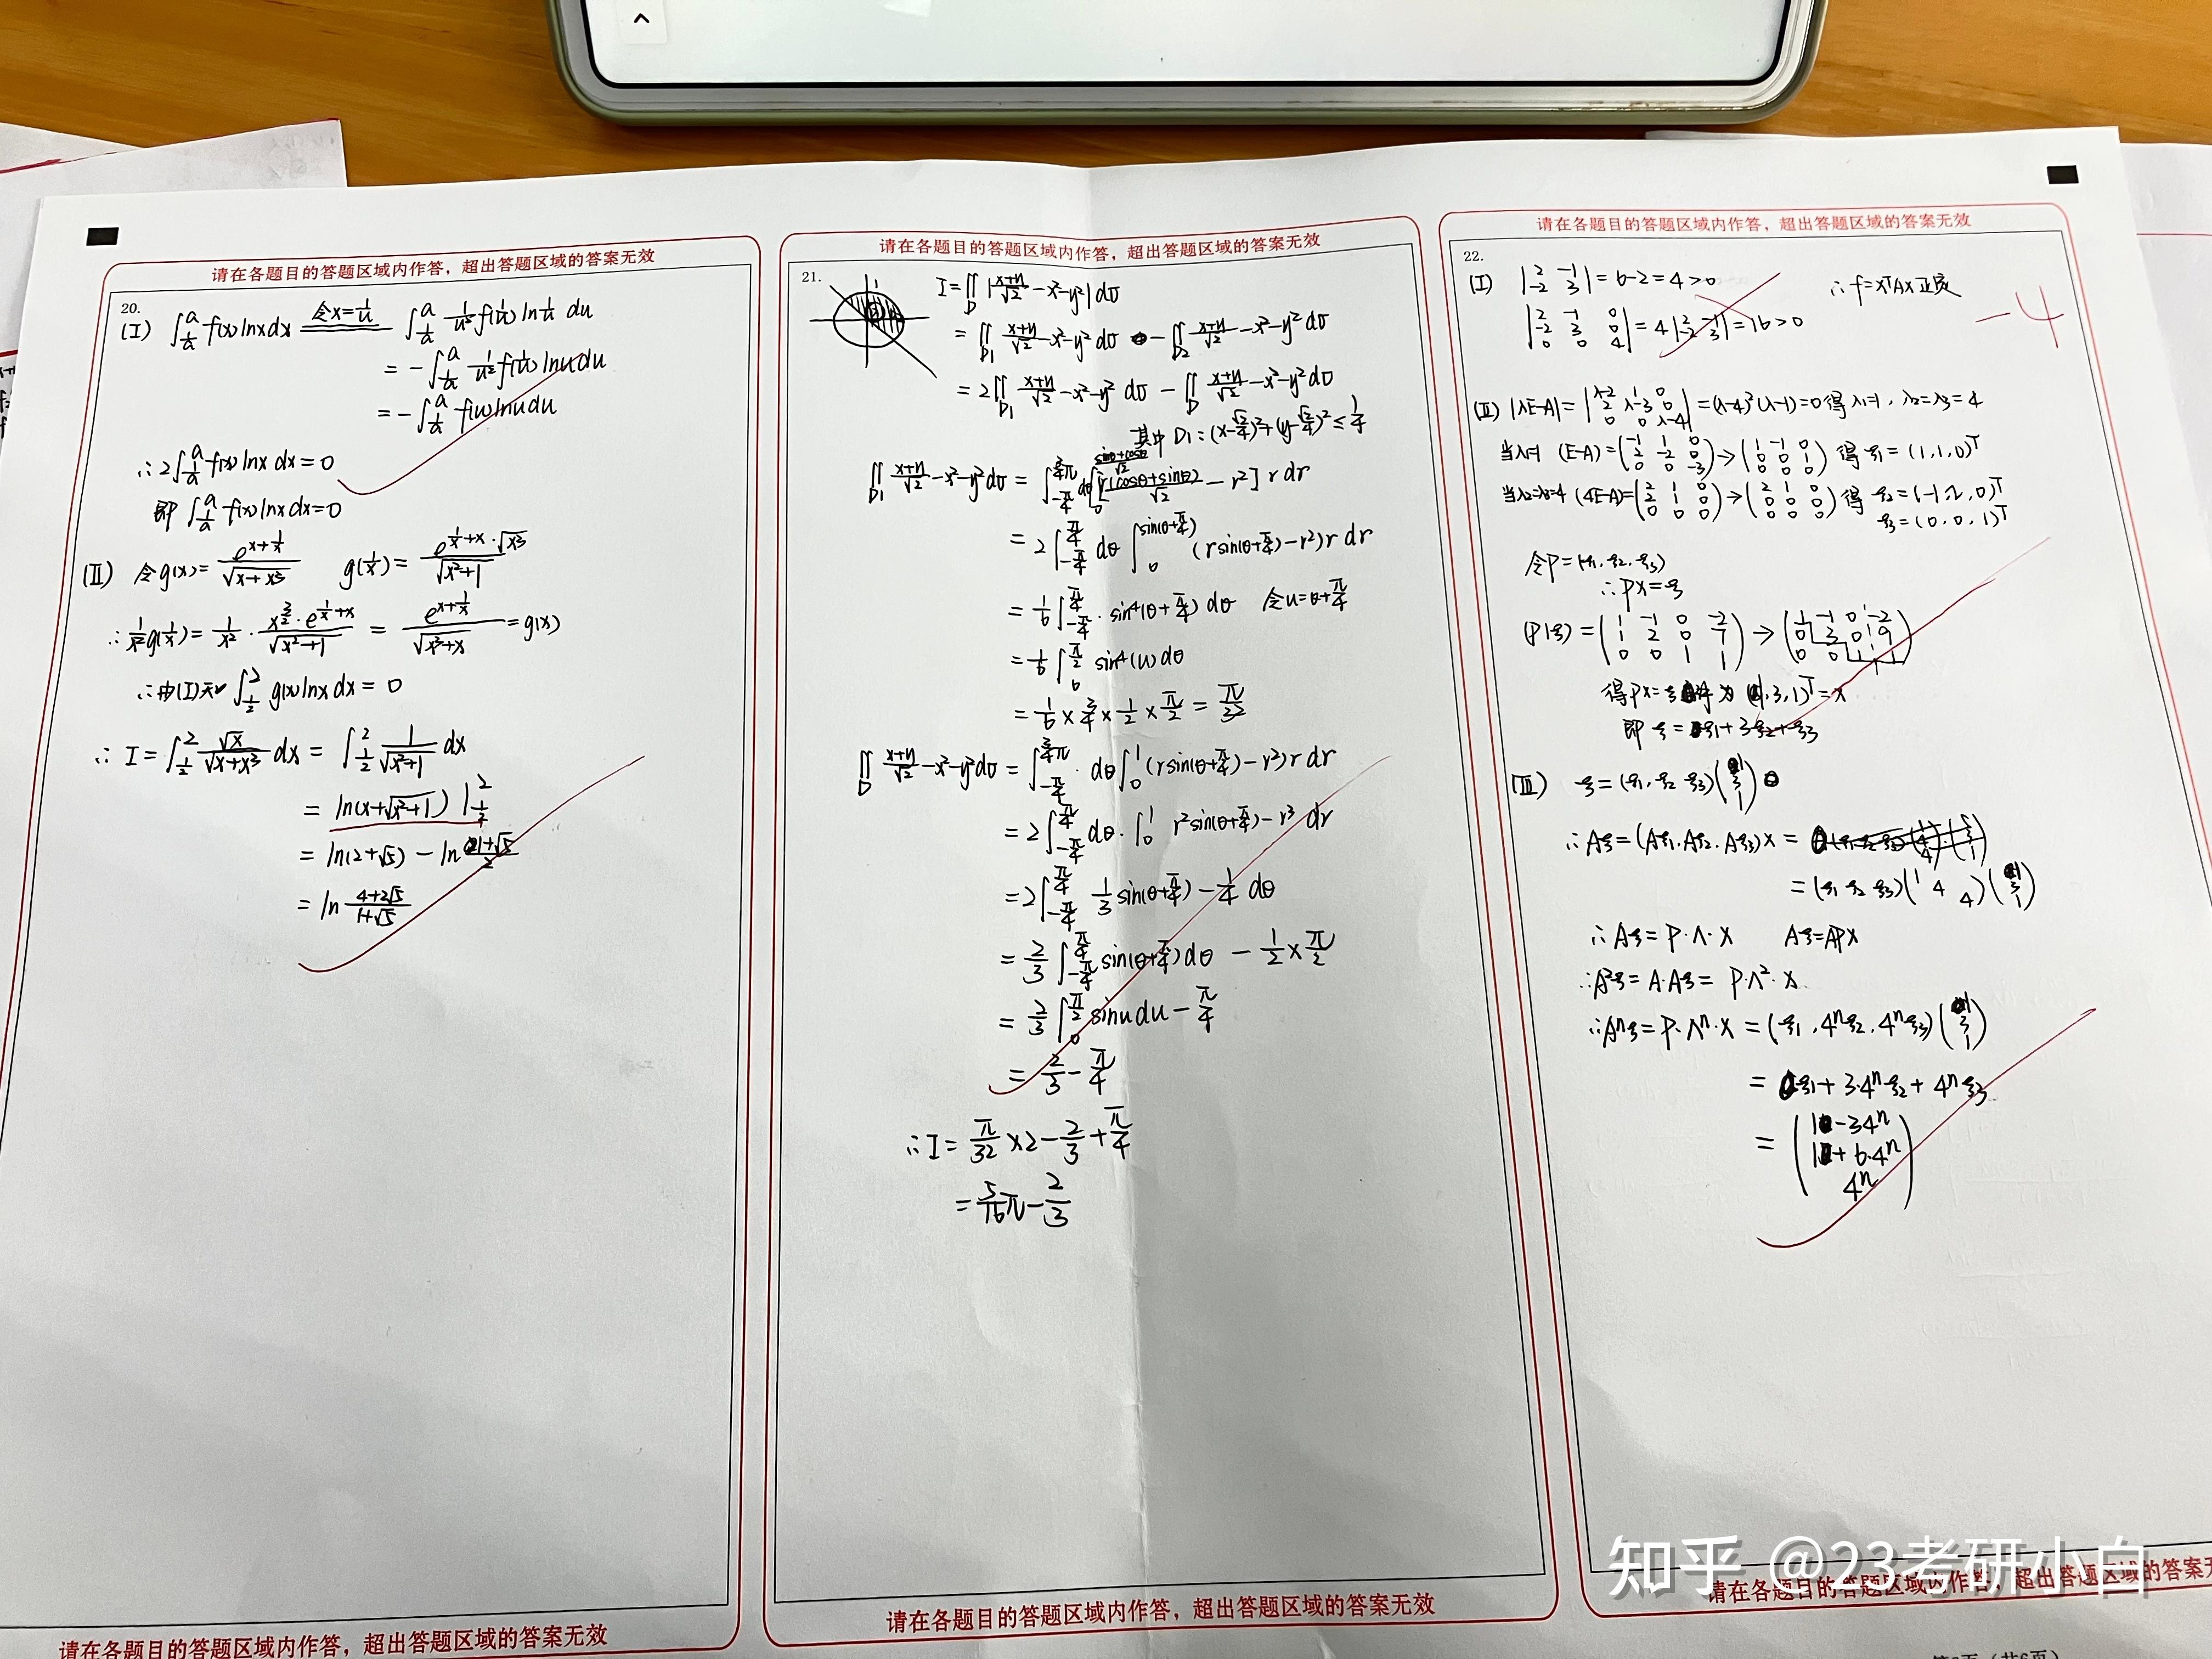 请在各题目的答题区域内作答，超出答题区域的答案无效
20.
(I) ∫_{1/a}^{a} f(x)lnxdx 令x=1/u ∫_{1/a}^{a} 1/u² f(1/u) ln 1/u du
= -∫_{1/a}^{a} 1/u² f(1/u) lnudu
= -∫_{1/a}^{a} f(u)lnudu
∴2∫_{1/a}^{a} f(x)lnxdx=0
即 ∫_{1/a}^{a} f(x)lnxdx=0
(II) 令g(x)= e^{x+1/x}/√(x+x³) g(1/x)= e^{1/x+x}·√x³/√(x²+1)
∴ 1/x² g(1/x)= 1/x² · x^{3/2}·e^{1/x+x}/√(x²+1) = e^{x+1/x}/√(x³+x) =g(x)
∴由(I)知 ∫_{1/2}^{2} g(x)lnxdx = 0
∴ I=∫_{1/2}^{2} √x/√(x+x³) dx = ∫_{1/2}^{2} 1/√(x²+1) dx
= ln(x+√(x²+1)) |_{1/2}^{2}
= ln(2+√5) - ln (1+√5)/2
= ln (4+2√5)/(1+√5)
请在各题目的答题区域内作答，超出答题区域的答案无效
请在各题目的答题区域内作答，超出答题区域的答案无效
21.
I=∬_D |(x+y)/√2 -x²-y²|dσ
= ∬_{D1} (x+y)/√2 -x²-y² dσ - ∬_{D2} (x+y)/√2 -x²-y² dσ
= 2∬_{D1} (x+y)/√2 -x²-y² dσ - ∬_D (x+y)/√2 -x²-y² dσ
其中 D1:(x-√2/4)²+(y-√2/4)²≤1/4
∬_{D1} (x+y)/√2 -x²-y² dσ = ∫_{-π/4}^{3/4π} dθ∫_0^{(sinθ+cosθ)/√2} [r(cosθ+sinθ)/√2 - r²] r dr
= 2∫_{-π/4}^{π/4} dθ ∫_0^{sin(θ+π/4)} (rsin(θ+π/4)-r²)r dr
= 1/6 ∫_{-π/4}^{π/4} · sin⁴(θ+π/4) dθ 令u=θ+π/4
= 1/6 ∫_0^{π/2} sin⁴(u) dθ
= 1/6 × 3/4 × 1/2 × π/2 = π/32
∬_D (x+y)/√2 -x²-y² dσ = ∫_{-π/4}^{3/4π} · dθ∫_0^1 (rsin(θ+π/4)-r²)r dr
= 2∫_{-π/4}^{π/4} dθ · ∫_0^1 r²sin(θ+π/4)-r³ dr
= 2∫_{-π/4}^{π/4} 1/3 sin(θ+π/4) - 1/4 dθ
= 2/3 ∫_{-π/4}^{π/4} sin(θ+π/4)dθ - 1/2×π/2
= 2/3 ∫_0^{π/2} sinudu - π/4
= 2/3 - π/4
∴I= π/32 ×2 - 2/3 + π/4
= 5/16 π - 2/3
请在各题目的答题区域内作答，超出答题区域的答案无效
请在各题目的答题区域内作答，超出答题区域的答案无效
22.
(I) |2 -1; -2 3| = 6-2=4>0 ∴f=xᵀAx正定
|2 -1 0; -2 3 0; 0 0 4| = 4|2 -1; -2 3| = 16>0
-4
(II) |λE-A|= |λ-2 1 0; 2 λ-3 0; 0 0 λ-4| =(λ-4)²(λ-1)=0得 λ1=1, λ2=λ3=4
当λ=1 (E-A)=(-1 1 0; 2 -2 0; 0 0 -3)→(1 -1 0; 0 0 1; 0 0 0) 得ξ1=(1,1,0)ᵀ
当λ2=λ3=4 (4E-A)=(2 1 0; 2 1 0; 0 0 0)→(2 1 0; 0 0 0; 0 0 0) 得 ξ2=(-1,2,0)ᵀ
ξ3=(0,0,1)ᵀ
令P=(ξ1,ξ2,ξ3)
∴PX=ξ
(P|ξ)=(1 -1 0 -2; 1 2 0 7; 0 0 1 1)→(1 -1 0 -2; 0 3 0 9; 0 0 1 1)
得PX=ξ解为(1,3,1)ᵀ=x
即ξ=ξ1+3ξ2+ξ3
(III) ξ=(ξ1,ξ2 ξ3)(1; 3; 1)
∴Aξ=(Aξ1,Aξ2,Aξ3)X =
=(ξ1 ξ2 ξ3)(1 4 4)(1; 3; 1)
∴Aξ=P·Λ·X Aξ=APX
∴A²ξ=A·Aξ= P·Λ²·X
∴Aⁿξ=P·Λⁿ·X=(ξ1,4ⁿξ2,4ⁿξ3)(1; 3; 1)
= ξ1+3·4ⁿξ2+4ⁿξ3
= (1-3·4ⁿ; 1+6·4ⁿ; 4ⁿ)
请在各题目的答题区域内作答，超出答题区域的答案无
知乎 @23考研小白